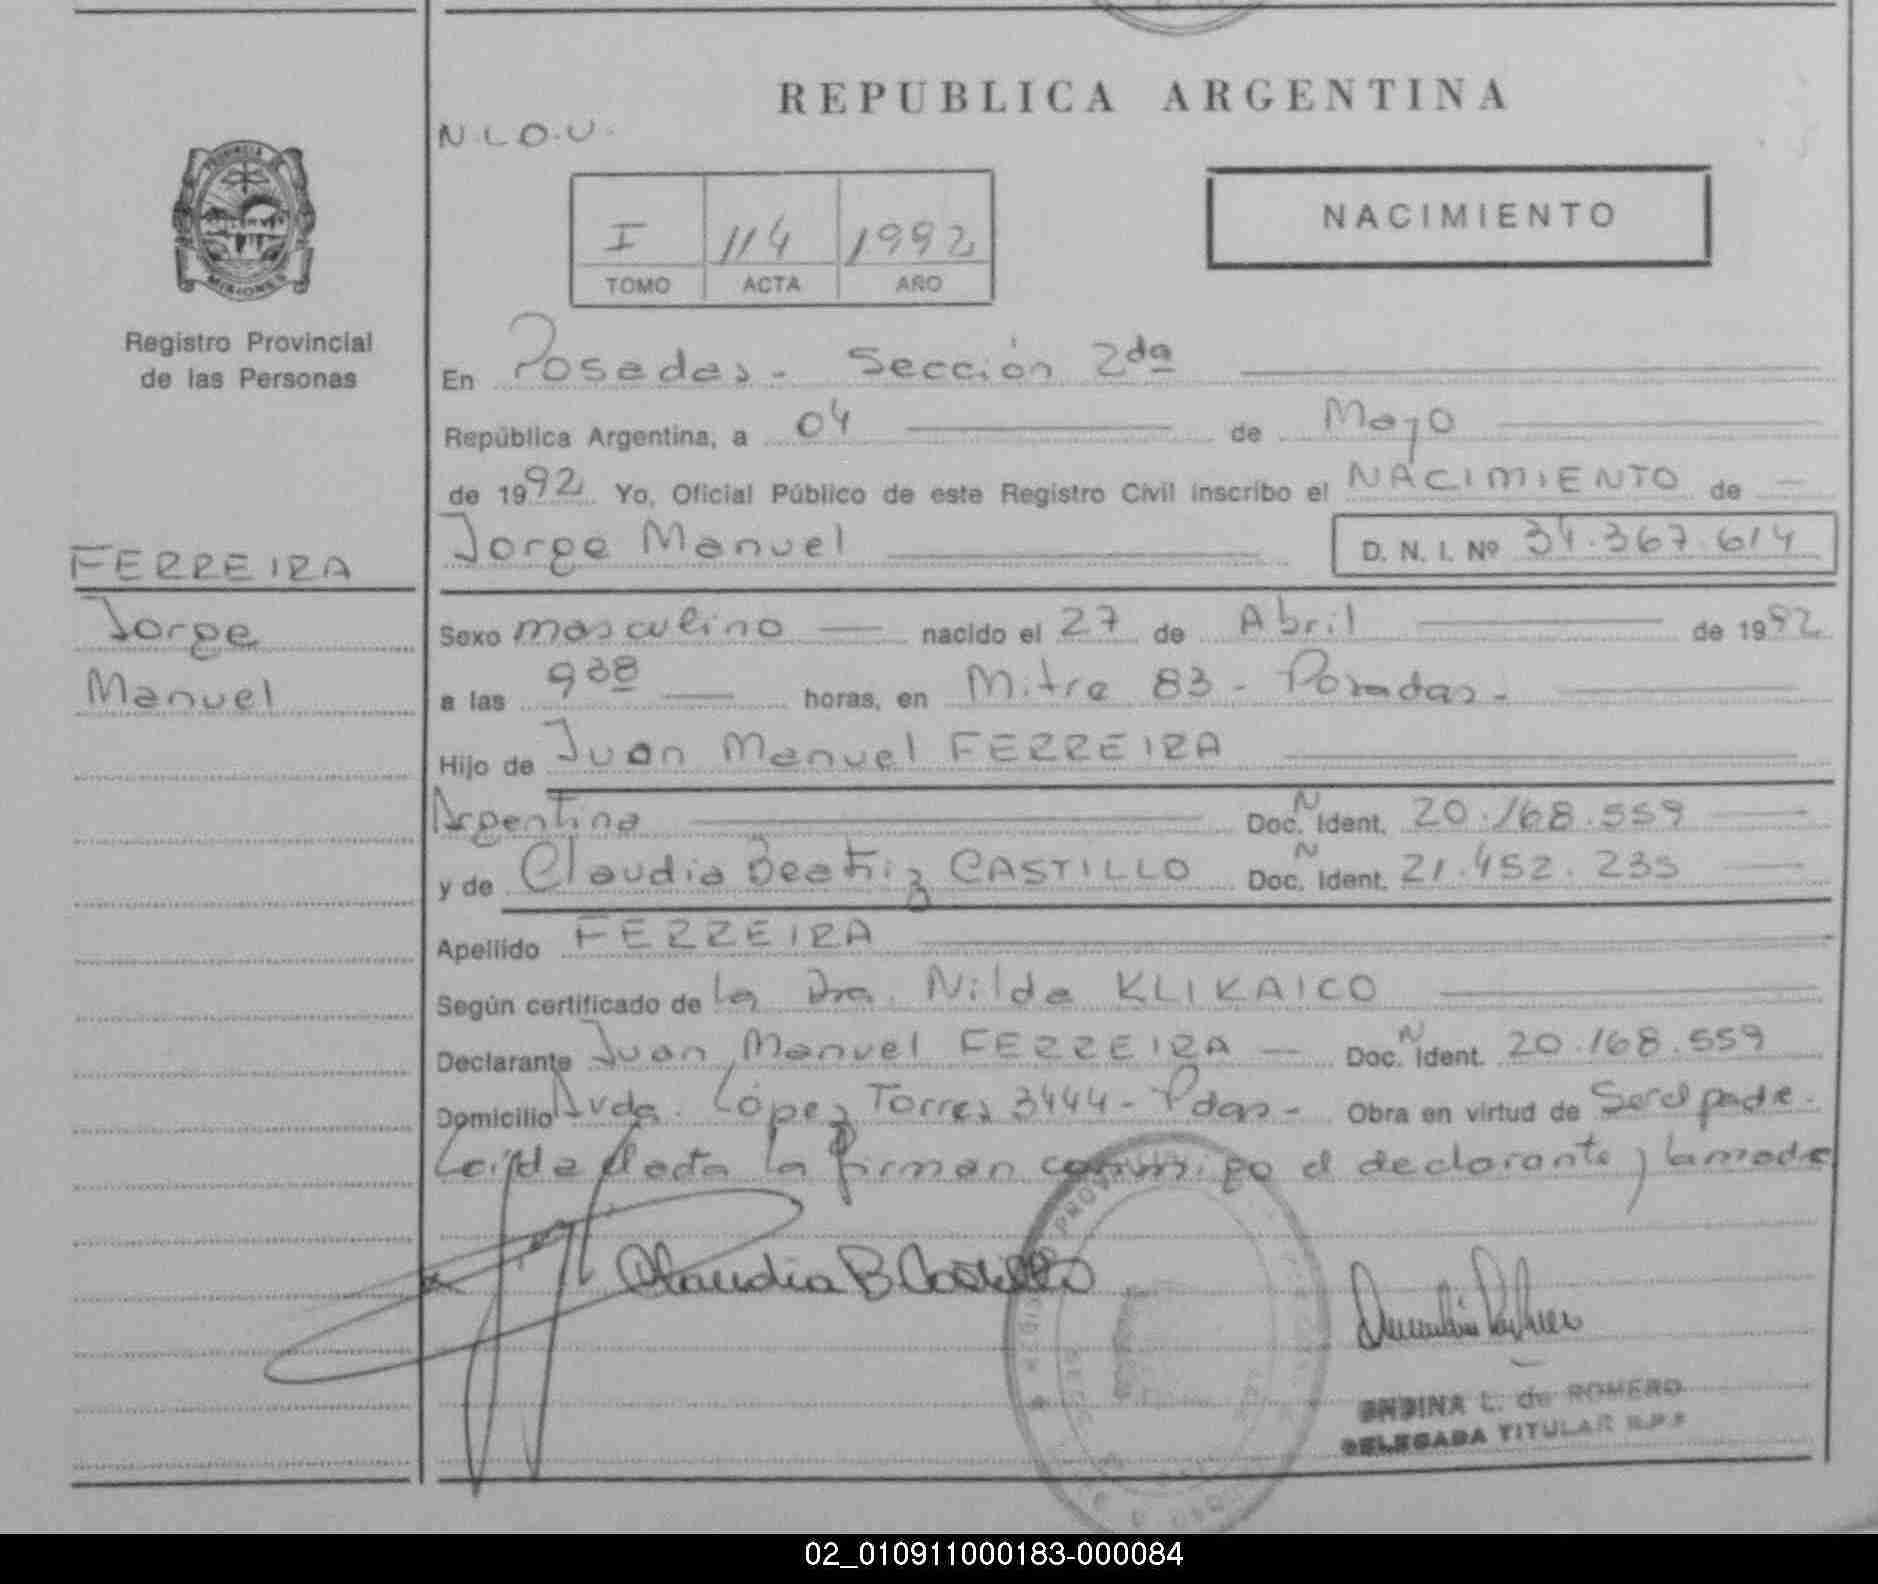 REPUBLICA ARGENTINA
N.L.O.U.
PROVINCIA DE
MISIONES
Registro Provincial
de las Personas
I 114 1992
TOMO ACTA AÑO
NACIMIENTO
En Posadas - Sección 2da
República Argentina, a 04 de Mayo
de 1992 Yo, Oficial Público de este Registro Civil inscribo el NACIMIENTO de
Jorge Manuel D. N. I. Nº 34.367.614
FERREIRA
Jorge
Manuel
Sexo masculino nacido el 27 de Abril de 1992
a las 938 horas, en Mitre 83 - Posadas -
Hijo de Juan Manuel FERREIRA
Argentina Doc. N Ident. 20.168.559
y de Claudia Beatriz CASTILLO Doc. N Ident. 21.452.235
Apellido FERREIRA
Según certificado de la Dra. Nilda KLIKAICO
Declarante Juan Manuel FERREIRA Doc. N Ident. 20.168.559
Domicilio Avda. López Torres 3444 - Pdas - Obra en virtud de Ser el padre.
Leída el acta la firman conmigo el declarante y la madre
Claudia B Castillo
ONDINA L. de ROMERO
DELEGADA TITULAR R.P.P
02_010911000183-000084